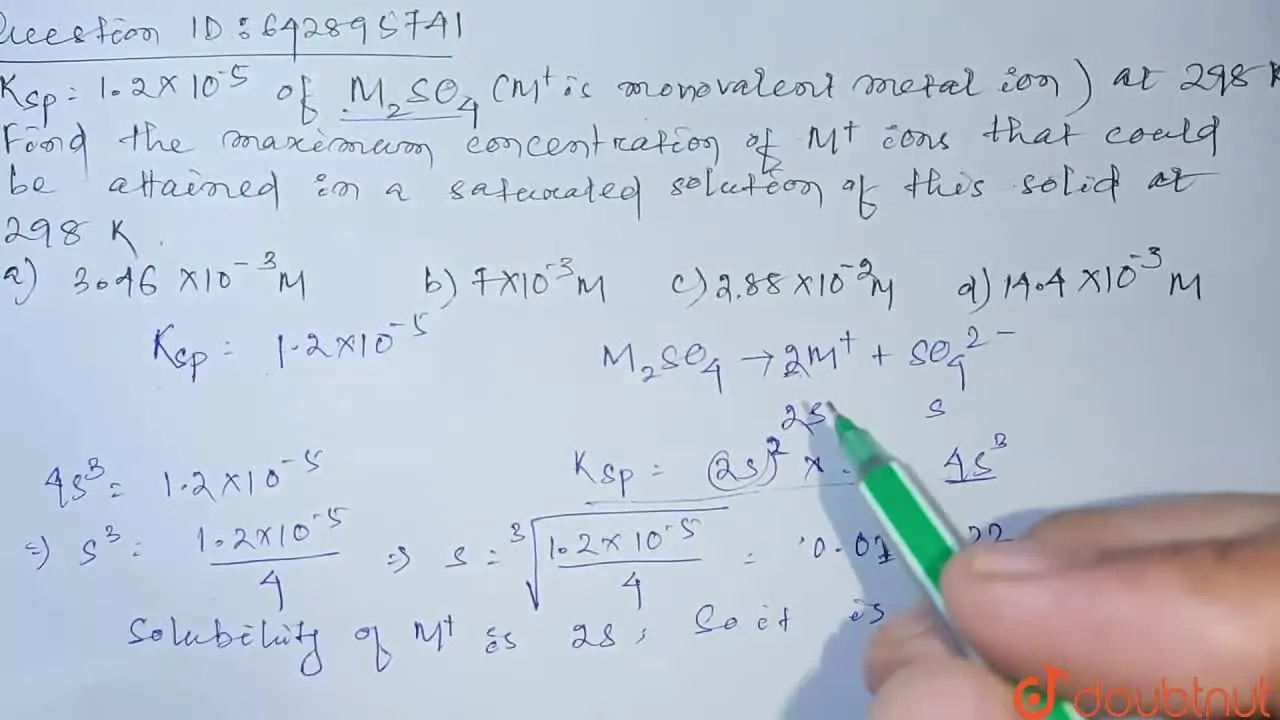 Question ID: 642895741
Ksp = 1.2 × 10⁻⁵ of M₂SO₄ (M⁺ is monovalent metal ion) at 298 K
Find the maximum concentration of M⁺ ions that could
be attained in a saturated solution of this solid at
298 K.
a) 3.46 × 10⁻³ M b) 7 × 10⁻³ M c) 2.88 × 10⁻² M d) 14.4 × 10⁻³ M
Ksp = 1.2 × 10⁻⁵ M₂SO₄ → 2M⁺ + SO₄²⁻
2s s
4s³ = 1.2 × 10⁻⁵ Ksp = (2s)² × 4s³
⇒ s³ = 1.2 × 10⁻⁵ / 4 ⇒ s = ³√(1.2 × 10⁻⁵ / 4) =
Solubility of M⁺ is 2s, So it is
doubtnut